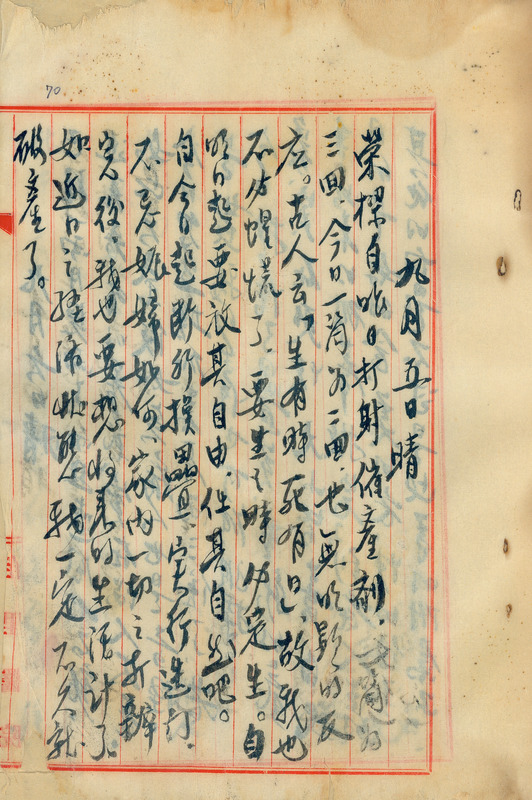 70
九月五日 晴
榮樑自昨日打射催產劑，一筒為
三回，今日一筒為二回，也無明顯的反
應。古人云，「生有時死有日」，故我也
不必惶慌了，要生之時必定生。自
明日起要放其自由，任其自然吧。
自今日起斷行換器具，實行造灯，
不忍娠婦如何，家內一切之打辦
完後，我也要想將來的生活計了。
如近日之經濟狀態，我一定不久就
破產了。